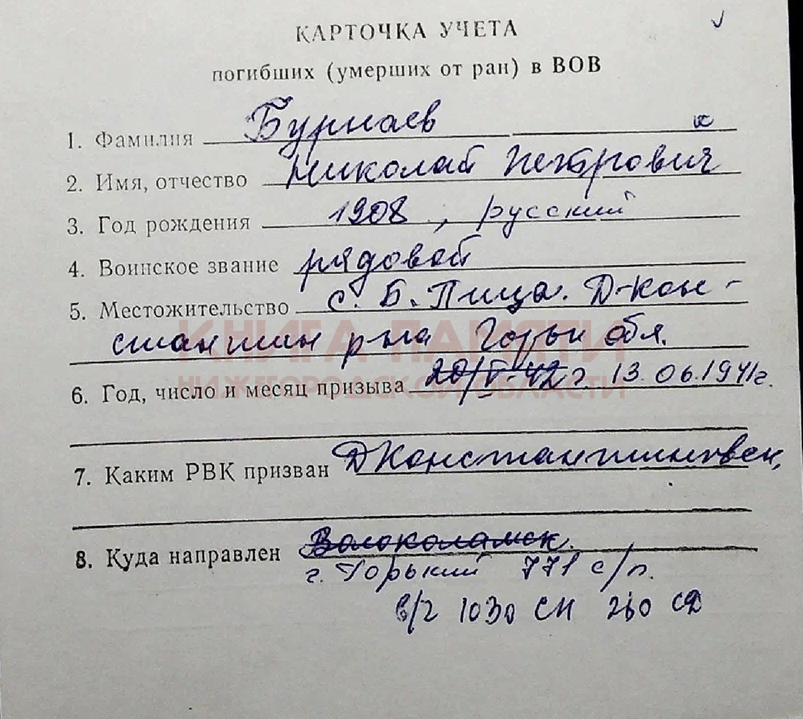 КАРТОЧКА УЧЕТА
погибших (умерших от ран) в ВОВ
1. Фамилия Бурнаев
2. Имя, отчество Николай Петрович
3. Год рождения 1908, русский
4. Воинское звание рядовой
5. Местожительство с. Б. Пица. Д-Кон-
стантин р-на Горьк обл.
КНИГА ПАМЯТИ
НИЖЕГОРОДСКОЙ ОБЛАСТИ
6. Год, число и месяц призыва 20/V-42 г. 13.06.1941г.
7. Каким РВК призван ДКонстантиновск,
8. Куда направлен Волоколамск.
г. Горький 771 с/п.
в/ч 1030 СП 260 СД